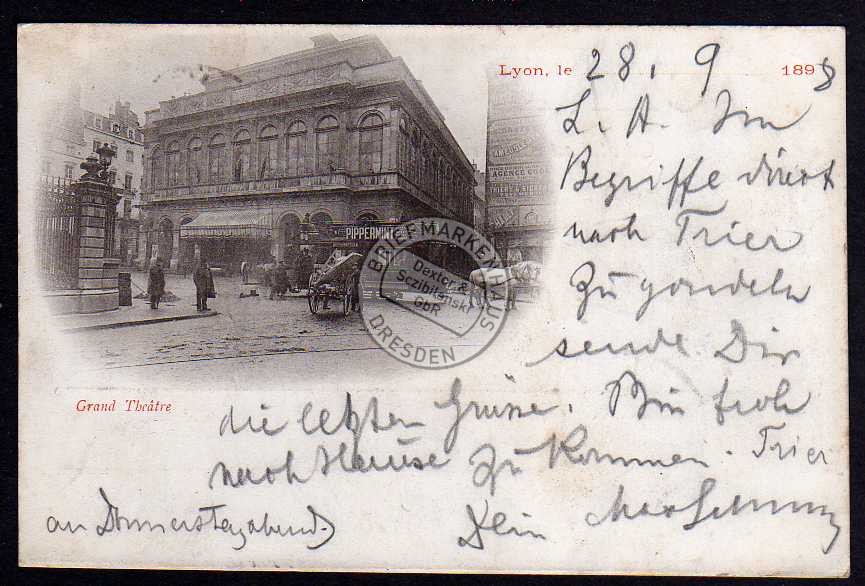 Lyon, le 28. 9 1898
L. A. Im
Begriffe direkt
nach Trier
zu gondeln
sende Dir
die letzten Grüsse. Bin froh
nach Hause zu kommen. Trier
an Donnerstagabend.)
Dein Max
Grand Théâtre
PIPPERMINT
AGENCE
BRIEFMARKENHAUS
Dexter &
Sczibilanski
GbR
DRESDEN